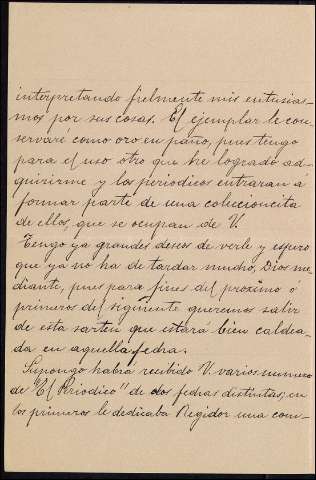 interpretando fielmente mis entusias-
mos por sus cosas. El ejemplar le con
servaré como oro en paño, pues tengo
para el uso otro que he logrado ad-
quirirme y los periodicos entraran a
formar parte de una coleccioncita
de ellos, que se ocupan de V.
Tengo ya grandes deseos de verle y espero
que ya no ha de tardar mucho, Dios me
diante, pues para fines del proximo ó
primeros del siguiente queremos salir
de esta sarten que estará bien caldea-
da en aquella fecha.
Supongo habrá recibido V. varios numeros
de "El Periodico" de dos fechas distintas; en
los primeros le dedicaba Regidor una com-